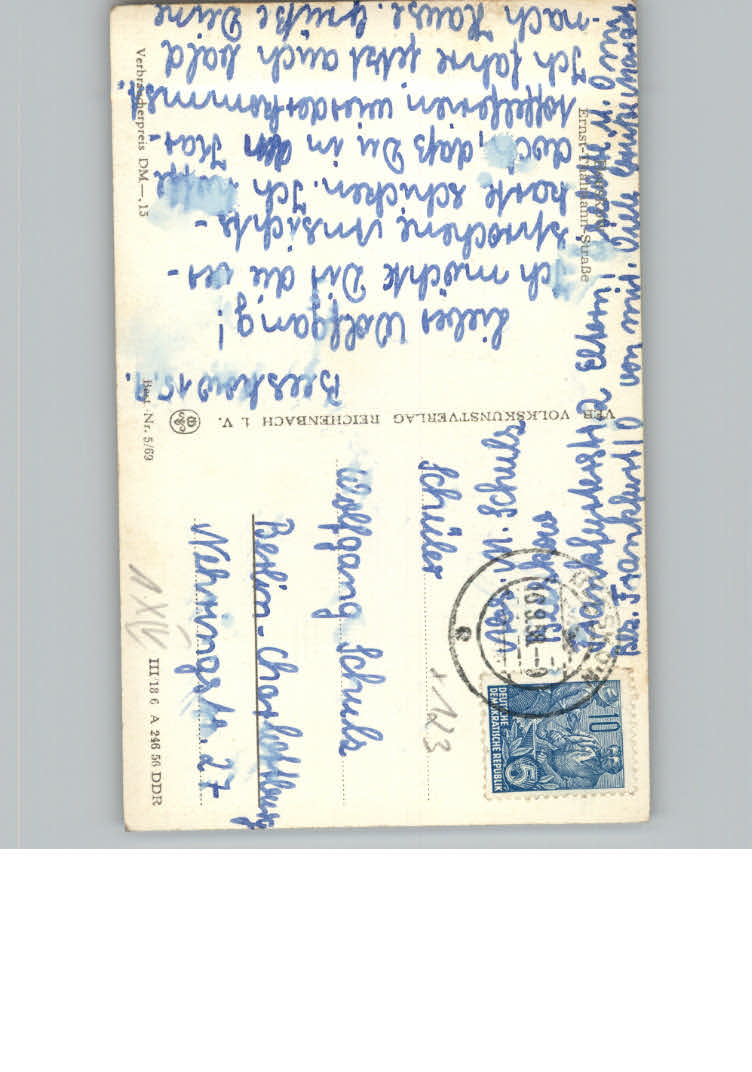 Beeskow 15.9.
Lieber Wolfgang!
Ich möchte Dir die ver-
sprochene Ansichts-
karte schicken. Ich hoffe
doch, daß Du in den Kar-
toffelferien wiederkommst.
Ich fahre jetzt auch bald
nach Hause. Grüße Deine
von mir. Viele Grüße
Ernst-Thälmann-Straße
Verbraucherpreis DM —,15
Best.-Nr. 5/69
VEB VOLKSKUNSTVERLAG REICHENBACH i. V.
Abs.: M. Schulz
Beeskow
Frankfurterstr. 2
Bez. Frankfurt/O
Schüler
Wolfgang Schulz
Berlin-Charlottenburg
Nehringstr. 27
DEUTSCHE
DEMOKRATISCHE REPUBLIK
10
5
123
1 XIV
III/18 6 A 246 56 DDR